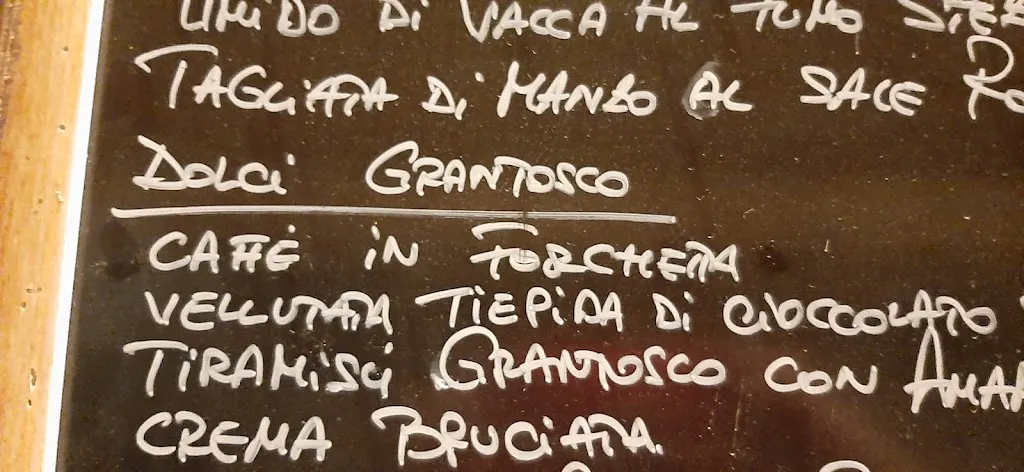 UMIDO DI VACCA AL
TAGLIATA DI MANZO AL SALE
DOLCI GRANTOSCO
CAFFÈ IN FORCHETTA
VELLUTATA TIEPIDA DI CIOCCOLATO
TIRAMISÙ GRANTOSCO CON
CREMA BRUCIATA